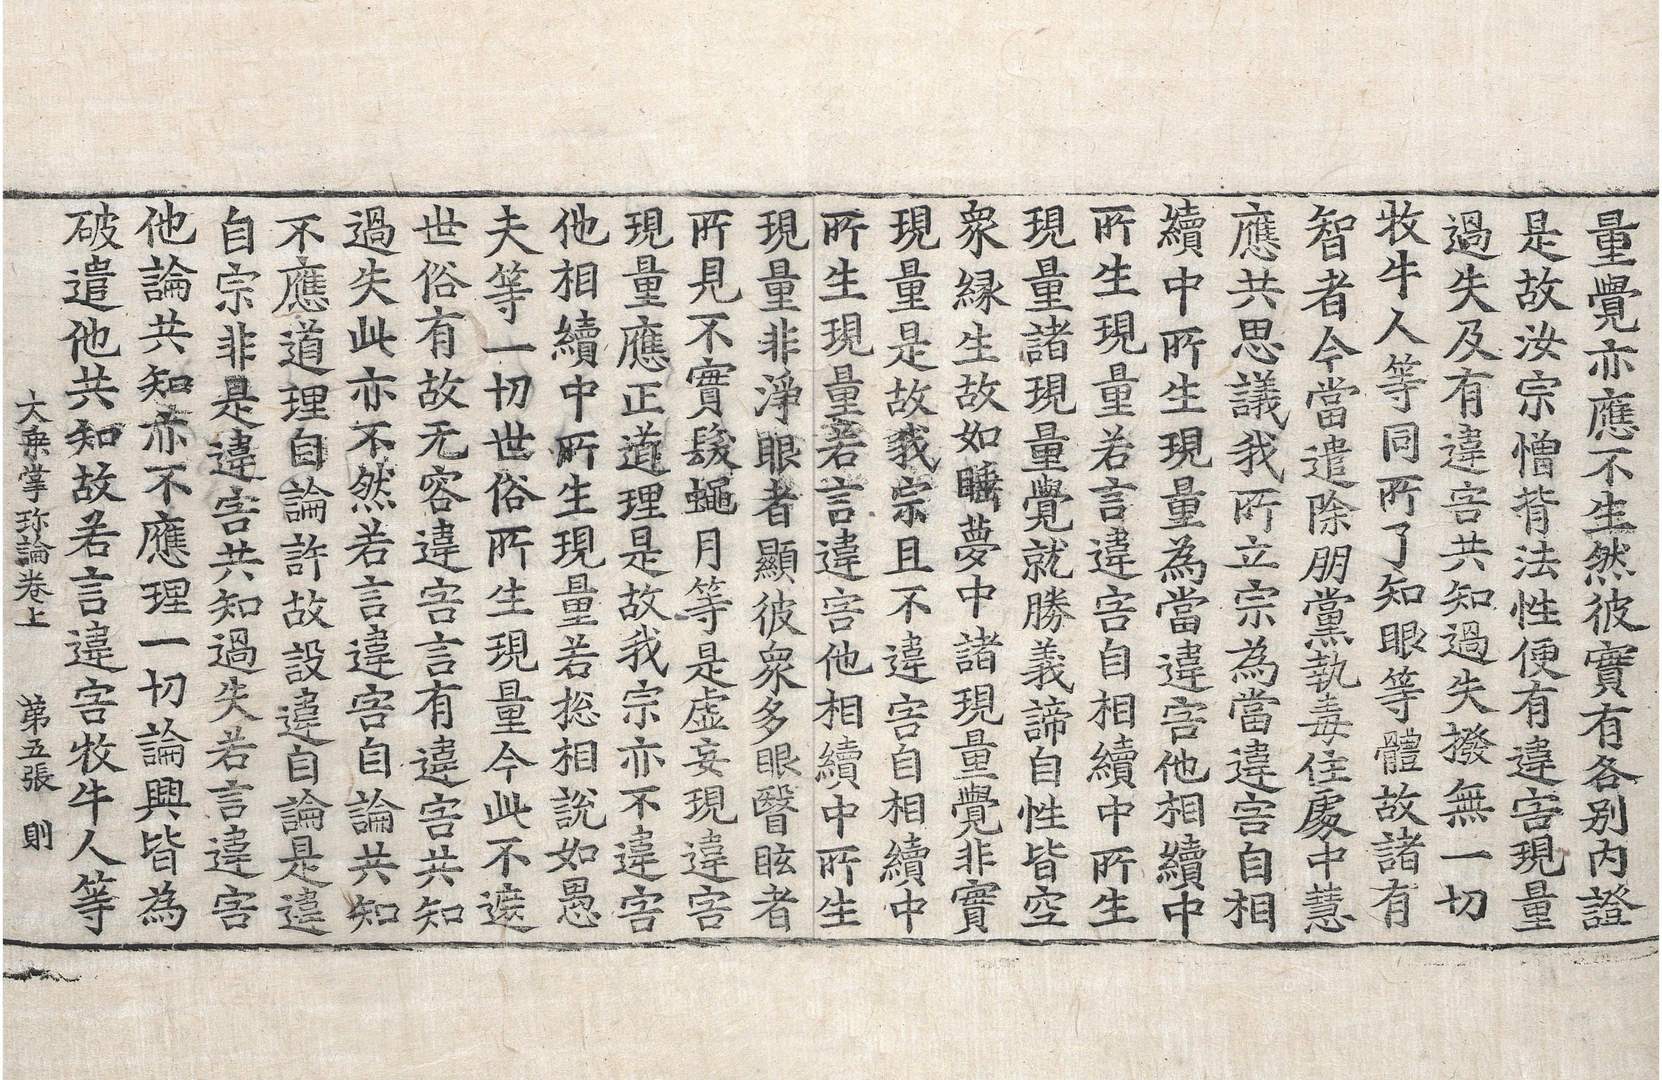 量覺亦應不生然彼實有各別內證
是故汝宗憎背法性便有違害現量
過失及有違害共知過失撥無一切
牧牛人等同所了知眼等體故諸有
智者今當遣除朋黨執毒住處中慧
應共思議我所立宗為當違害自相
續中所生現量為當違害他相續中
所生現量若言違害自相續中所生
現量諸現量覺就勝義諦自性皆空
衆緣生故如睡夢中諸現量覺非實
現量是故我宗且不違害自相續中
所生現量若言違害他相續中所生
現量非淨眼者顯彼衆多眼瞖眩者
所見不實髮蠅月等是虛妄現違害
現量應正道理是故我宗亦不違害
他相續中所生現量若揔相說如愚
夫等一切世俗所生現量今此不遮
世俗有故无容違害言有違害共知
過失此亦不然若言違害自論共知
不應道理自論許故設違自論是違
自宗非是違害共知過失若言違害
他論共知亦不應理一切論興皆為
破遣他共知故若言違害牧牛人等
大乘掌珎論卷上 第五張 則